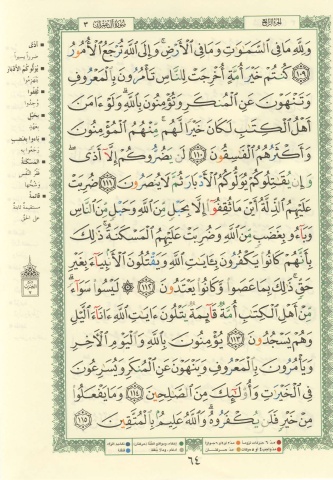 سُورَةُ آلِ عِمْرَان ٣
الجزء الرابع
وَلِلَّهِ مَا فِي السَّمَٰوَٰتِ وَمَا فِي الْأَرْضِ ۚ وَإِلَى اللَّهِ تُرْجَعُ الْأُمُورُ
﴿١٠٩﴾ كُنتُمْ خَيْرَ أُمَّةٍ أُخْرِجَتْ لِلنَّاسِ تَأْمُرُونَ بِالْمَعْرُوفِ
وَتَنْهَوْنَ عَنِ الْمُنكَرِ وَتُؤْمِنُونَ بِاللَّهِ ۗ وَلَوْ ءَامَنَ
أَهْلُ الْكِتَٰبِ لَكَانَ خَيْرًا لَّهُم ۚ مِّنْهُمُ الْمُؤْمِنُونَ
وَأَكْثَرُهُمُ الْفَٰسِقُونَ ﴿١١٠﴾ لَن يَضُرُّوكُمْ إِلَّا أَذًى ۖ
وَإِن يُقَٰتِلُوكُمْ يُوَلُّوكُمُ الْأَدْبَارَ ثُمَّ لَا يُنصَرُونَ ﴿١١١﴾ ضُرِبَتْ
عَلَيْهِمُ الذِّلَّةُ أَيْنَ مَا ثُقِفُوٓا إِلَّا بِحَبْلٍ مِّنَ اللَّهِ وَحَبْلٍ مِّنَ النَّاسِ
وَبَآءُو بِغَضَبٍ مِّنَ اللَّهِ وَضُرِبَتْ عَلَيْهِمُ الْمَسْكَنَةُ ۚ ذَٰلِكَ
بِأَنَّهُمْ كَانُوا يَكْفُرُونَ بِـَٔايَٰتِ اللَّهِ وَيَقْتُلُونَ الْأَنۢبِيَآءَ بِغَيْرِ
حَقٍّ ۚ ذَٰلِكَ بِمَا عَصَوا وَّكَانُوا يَعْتَدُونَ ﴿١١٢﴾ ۞ لَيْسُوا سَوَآءً ۗ
مِّنْ أَهْلِ الْكِتَٰبِ أُمَّةٌ قَآئِمَةٌ يَتْلُونَ ءَايَٰتِ اللَّهِ ءَانَآءَ الَّيْلِ
وَهُمْ يَسْجُدُونَ ﴿١١٣﴾ يُؤْمِنُونَ بِاللَّهِ وَالْيَوْمِ الْءَاخِرِ
وَيَأْمُرُونَ بِالْمَعْرُوفِ وَيَنْهَوْنَ عَنِ الْمُنكَرِ وَيُسَٰرِعُونَ
فِي الْخَيْرَٰتِ وَأُولَٰٓئِكَ مِنَ الصَّٰلِحِينَ ﴿١١٤﴾ وَمَا يَفْعَلُوا
مِنْ خَيْرٍ فَلَن يُكْفَرُوهُ ۗ وَاللَّهُ عَلِيمٌۢ بِالْمُتَّقِينَ ﴿١١٥﴾
٦٤
أذًى
ضررًا يسيرًا
يولّوكم الأدبار
ثقفوا
وُجدوا
بحبل
بعهد
باءوا بغضب
رجعوا به
المسكنة
فقر النفس
وشحّها
قائمة
مستقيمة ثابتة
على الحق